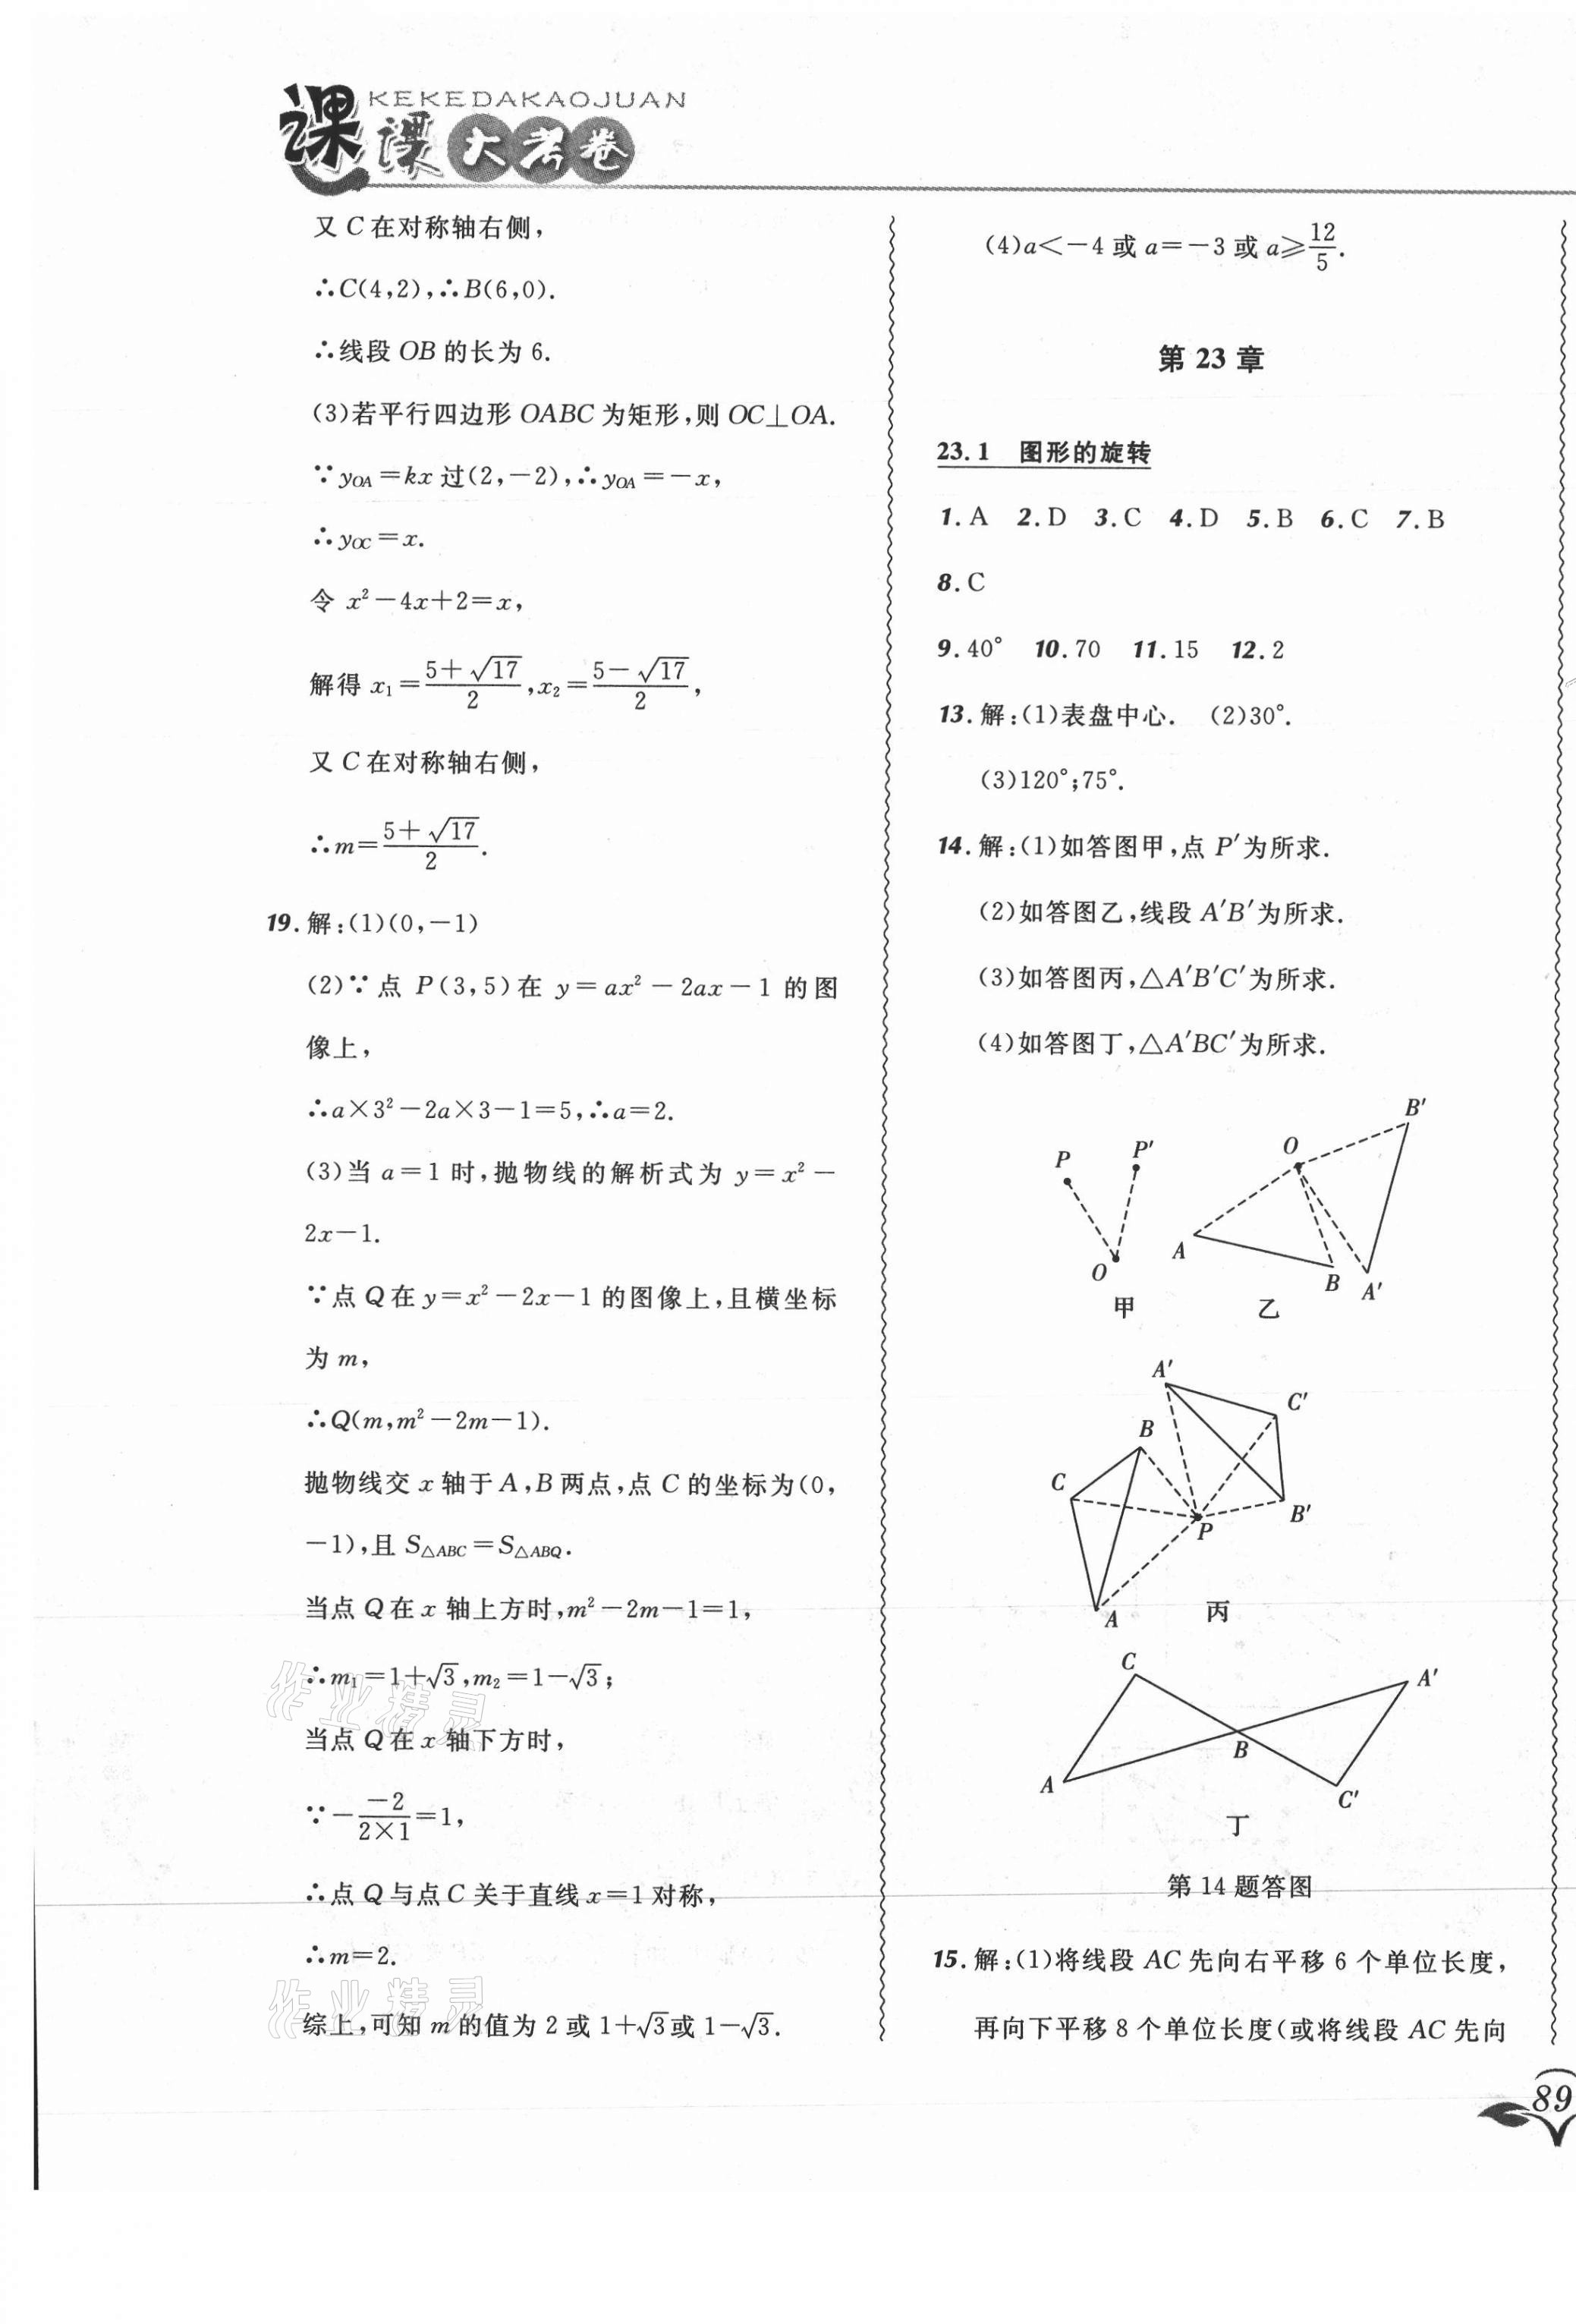 KEKEDAKAOJUAN
课课大考卷
又 C 在对称轴右侧，
∴C(4,2),∴B(6,0).
∴线段 OB 的长为 6.
(3)若平行四边形 OABC 为矩形，则 OC⊥OA.
∵y_OA=kx 过(2,-2),∴y_OA=-x,
∴y_OC=x.
令 x²-4x+2=x,
解得 x₁=(5+√17)/2,x₂=(5-√17)/2,
又 C 在对称轴右侧，
∴m=(5+√17)/2.
19.解:(1)(0,-1)
(2)∵点 P(3,5)在 y=ax²-2ax-1 的图
像上，
∴a×3²-2a×3-1=5,∴a=2.
(3)当 a=1 时，抛物线的解析式为 y=x²-
2x-1.
∵点 Q 在 y=x²-2x-1 的图像上，且横坐标
为 m,
∴Q(m,m²-2m-1).
抛物线交 x 轴于 A,B 两点，点 C 的坐标为(0,
-1),且 S△ABC=S△ABQ.
当点 Q 在 x 轴上方时，m²-2m-1=1,
∴m₁=1+√3,m₂=1-√3;
当点 Q 在 x 轴下方时，
∵-(-2)/(2×1)=1,
∴点 Q 与点 C 关于直线 x=1 对称，
∴m=2.
综上，可知 m 的值为 2 或 1+√3或 1-√3.
作业精灵
作业精灵
(4)a<-4 或 a=-3 或 a≥12/5.
第 23 章
23.1 图形的旋转
1.A 2.D 3.C 4.D 5.B 6.C 7.B
8.C
9.40° 10.70 11.15 12.2
13.解:(1)表盘中心. (2)30°.
(3)120°;75°.
14.解:(1)如答图甲，点 P′为所求.
(2)如答图乙，线段 A′B′为所求.
(3)如答图丙，△A′B′C′为所求.
(4)如答图丁，△A′BC′为所求.
P P′ O
甲
O B′ A B A′
乙
A′ C′ B C P B′ A
丙
C A′ B A C′
丁
第 14 题答图
15.解:(1)将线段 AC 先向右平移 6 个单位长度，
再向下平移 8 个单位长度(或将线段 AC 先向
89